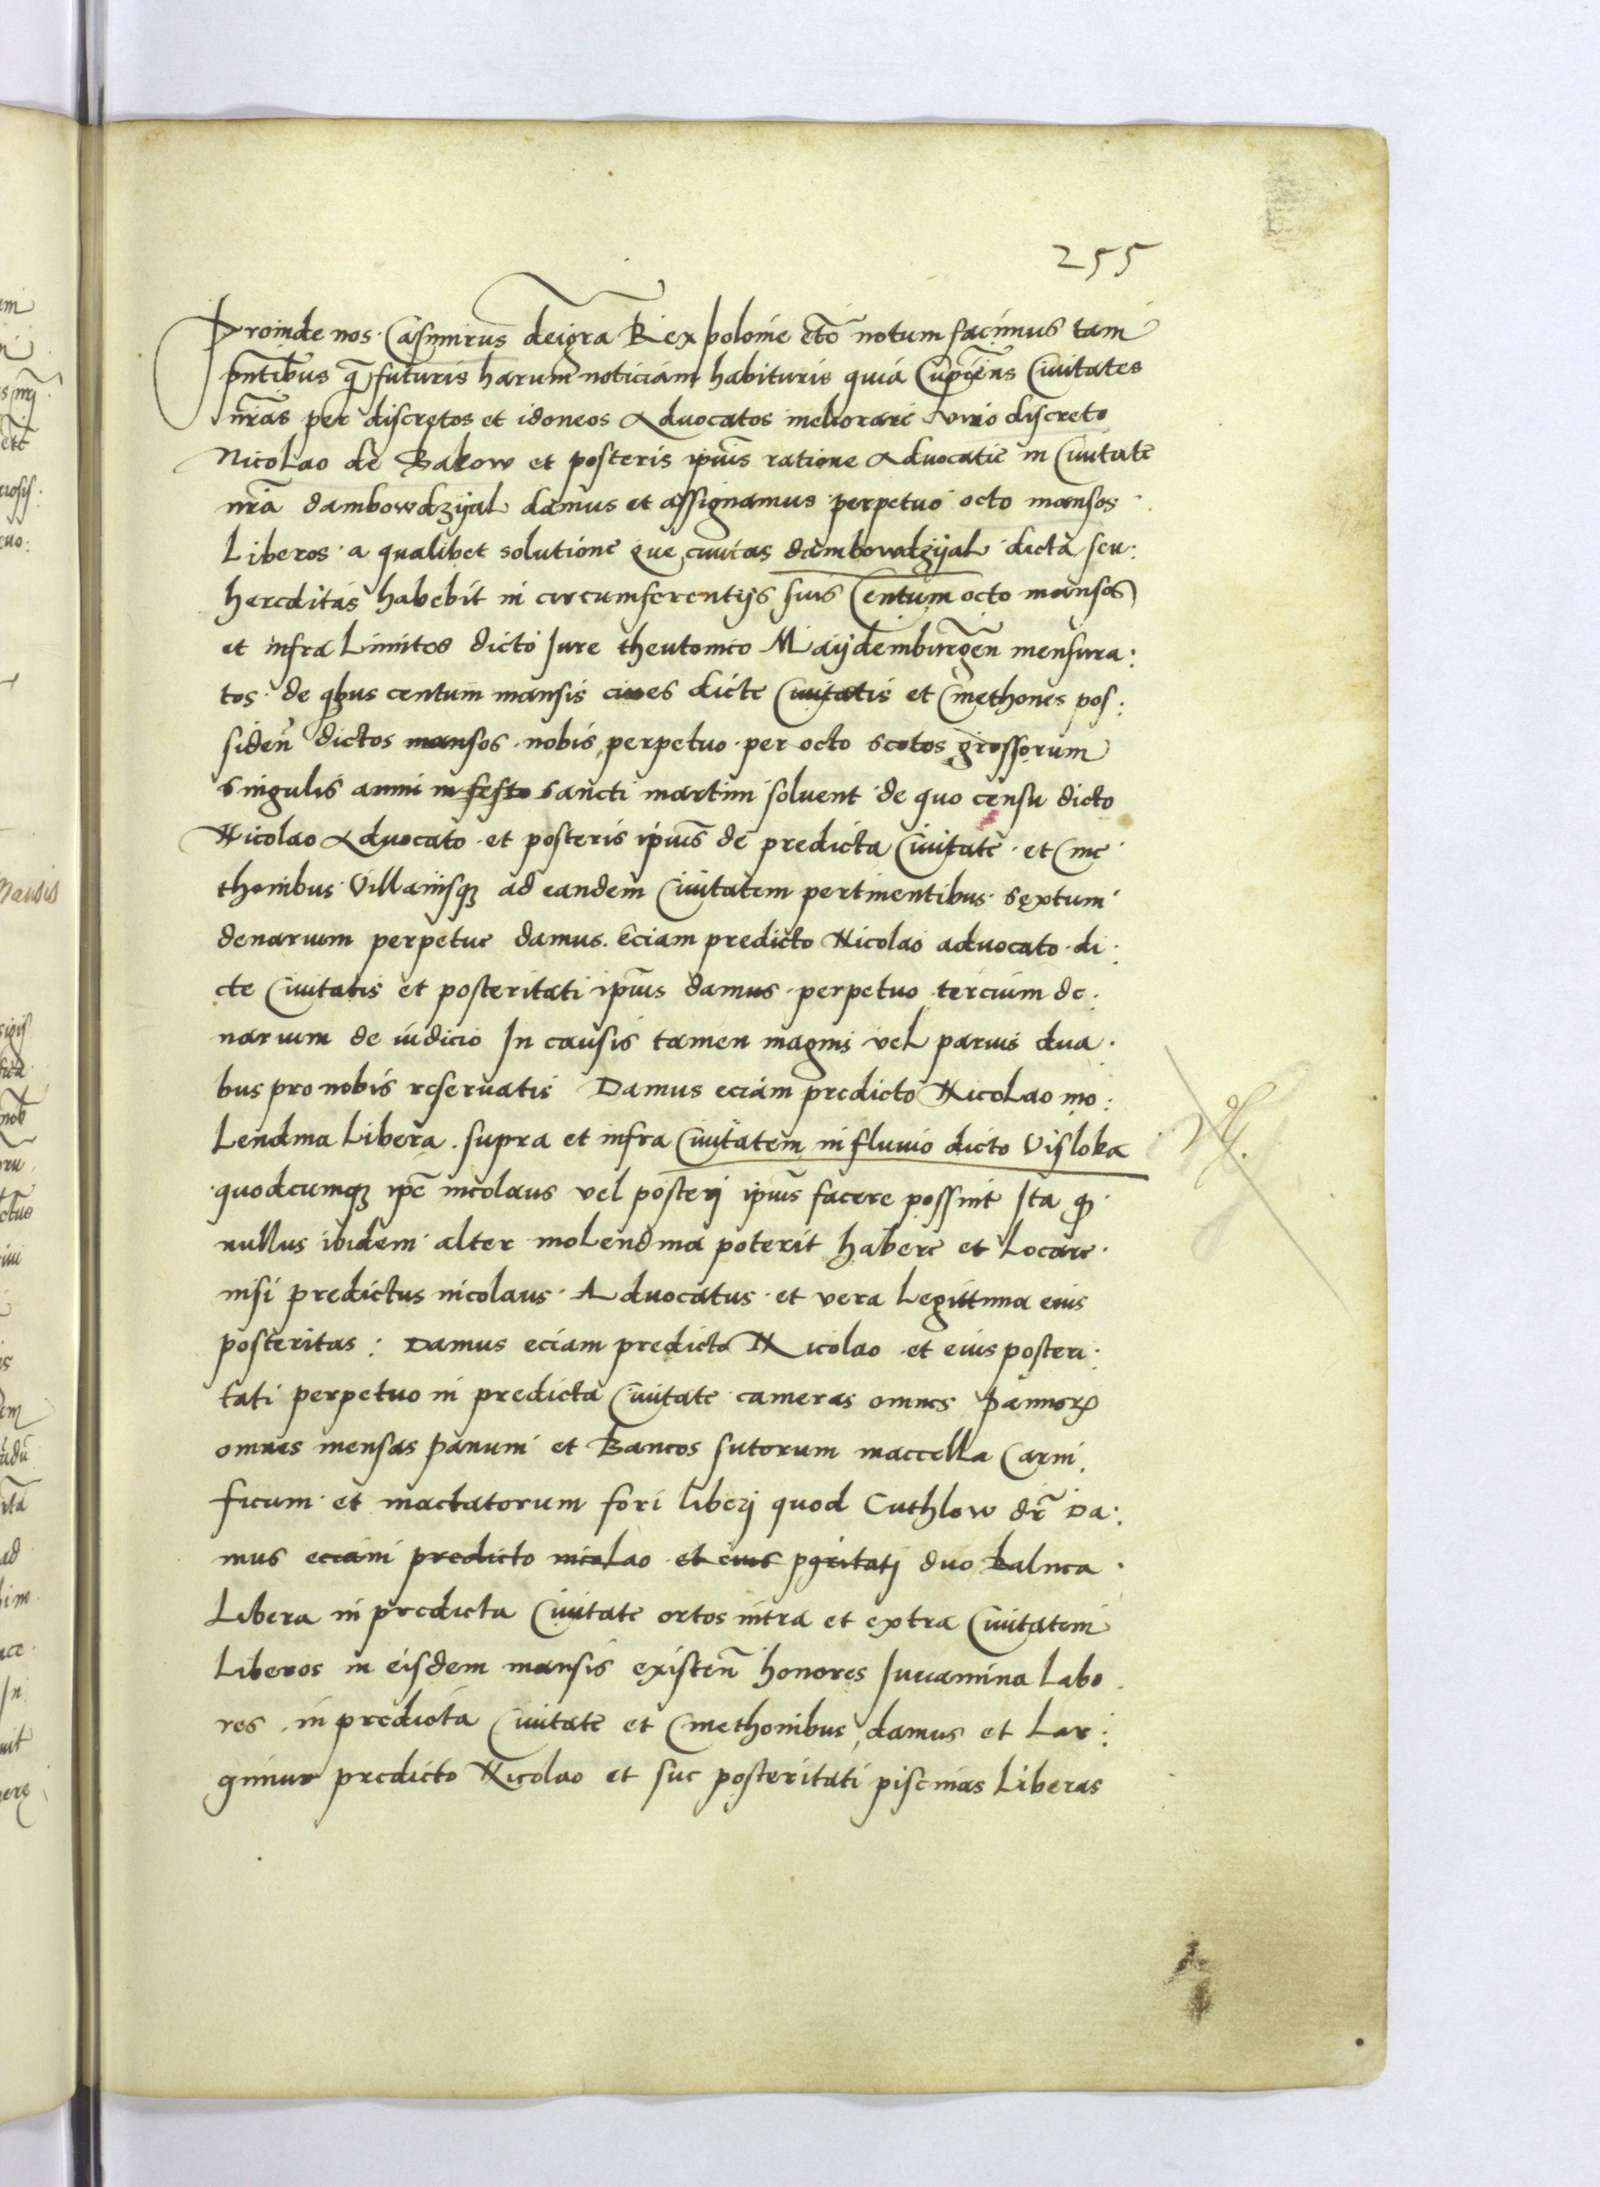 255
Proinde nos Casimirus deigra Rex polonie etc notum facimus tam
pntibus q futuris harum noticiam habituris quia Cupiens Civitates
nras per discretos et idoneos Advocatos meliorari viro discreto
Nicolao de Bakow et posteris ipius ratione Advocatie in Civitate
nra dambowdzyal damus et assignamus perpetuo octo mansos
Liberos a qualibet solutione que civitas dambowdzyal dicta seu
hereditas habebit in circumferentijs suis Centum octo mansos
et infra Limites dicto Iure theutonico Maydemburgen mensura:
tos de qbus centum mansis cives dicte Civitatis et Cmethones pos:
siden dictos mansos nobis perpetuo per octo scotos grossorum
singulis anni in festo sancti martini solvent de quo censu dicto
Nicolao Advocato et posteris ipius de predicta Civitate et Cme
thonibus Villanisq ad eandem Civitatem pertinentibus sextum
denarium perpetue damus. Eciam predicto Nicolao advocato di:
cte Civitatis et posteritati ipius damus perpetuo tercium de:
narium de iudicio In causis tamen magnis vel parvis dua
bus pro nobis reservatis Damus eciam predicto Nicolao mo:
Lendina Libera supra et infra Civitatem in fluvio dicto Visloka
quodcumq ipe nicolaus vel posterj ipius facere possint Ita q
nullus ibidem alter molendina poterit habere et Locare
nisi predictus nicolaus Advocatus et vera Legittima eius
posteritas: Damus eciam predicto Nicolao et eius posteri:
tati perpetuo in predicta Civitate cameras omnes pannor
omnes mensas panum et Bancos sutorum maccella Carni
ficum et mactatorum fori liberj quod Cuthlow dr Da:
mus eciam predicto nicolao et eius pgritatj duo balnea
Libera in predicta Civitate ortos intra et extra Civitatem
Liberos in eisdem mansis existen honores Iuvamina Labo
res in predicta Civitate et Cmethonibus damus et Lar:
gimur predicto Nicolao et sue posteritati piscinas Liberas